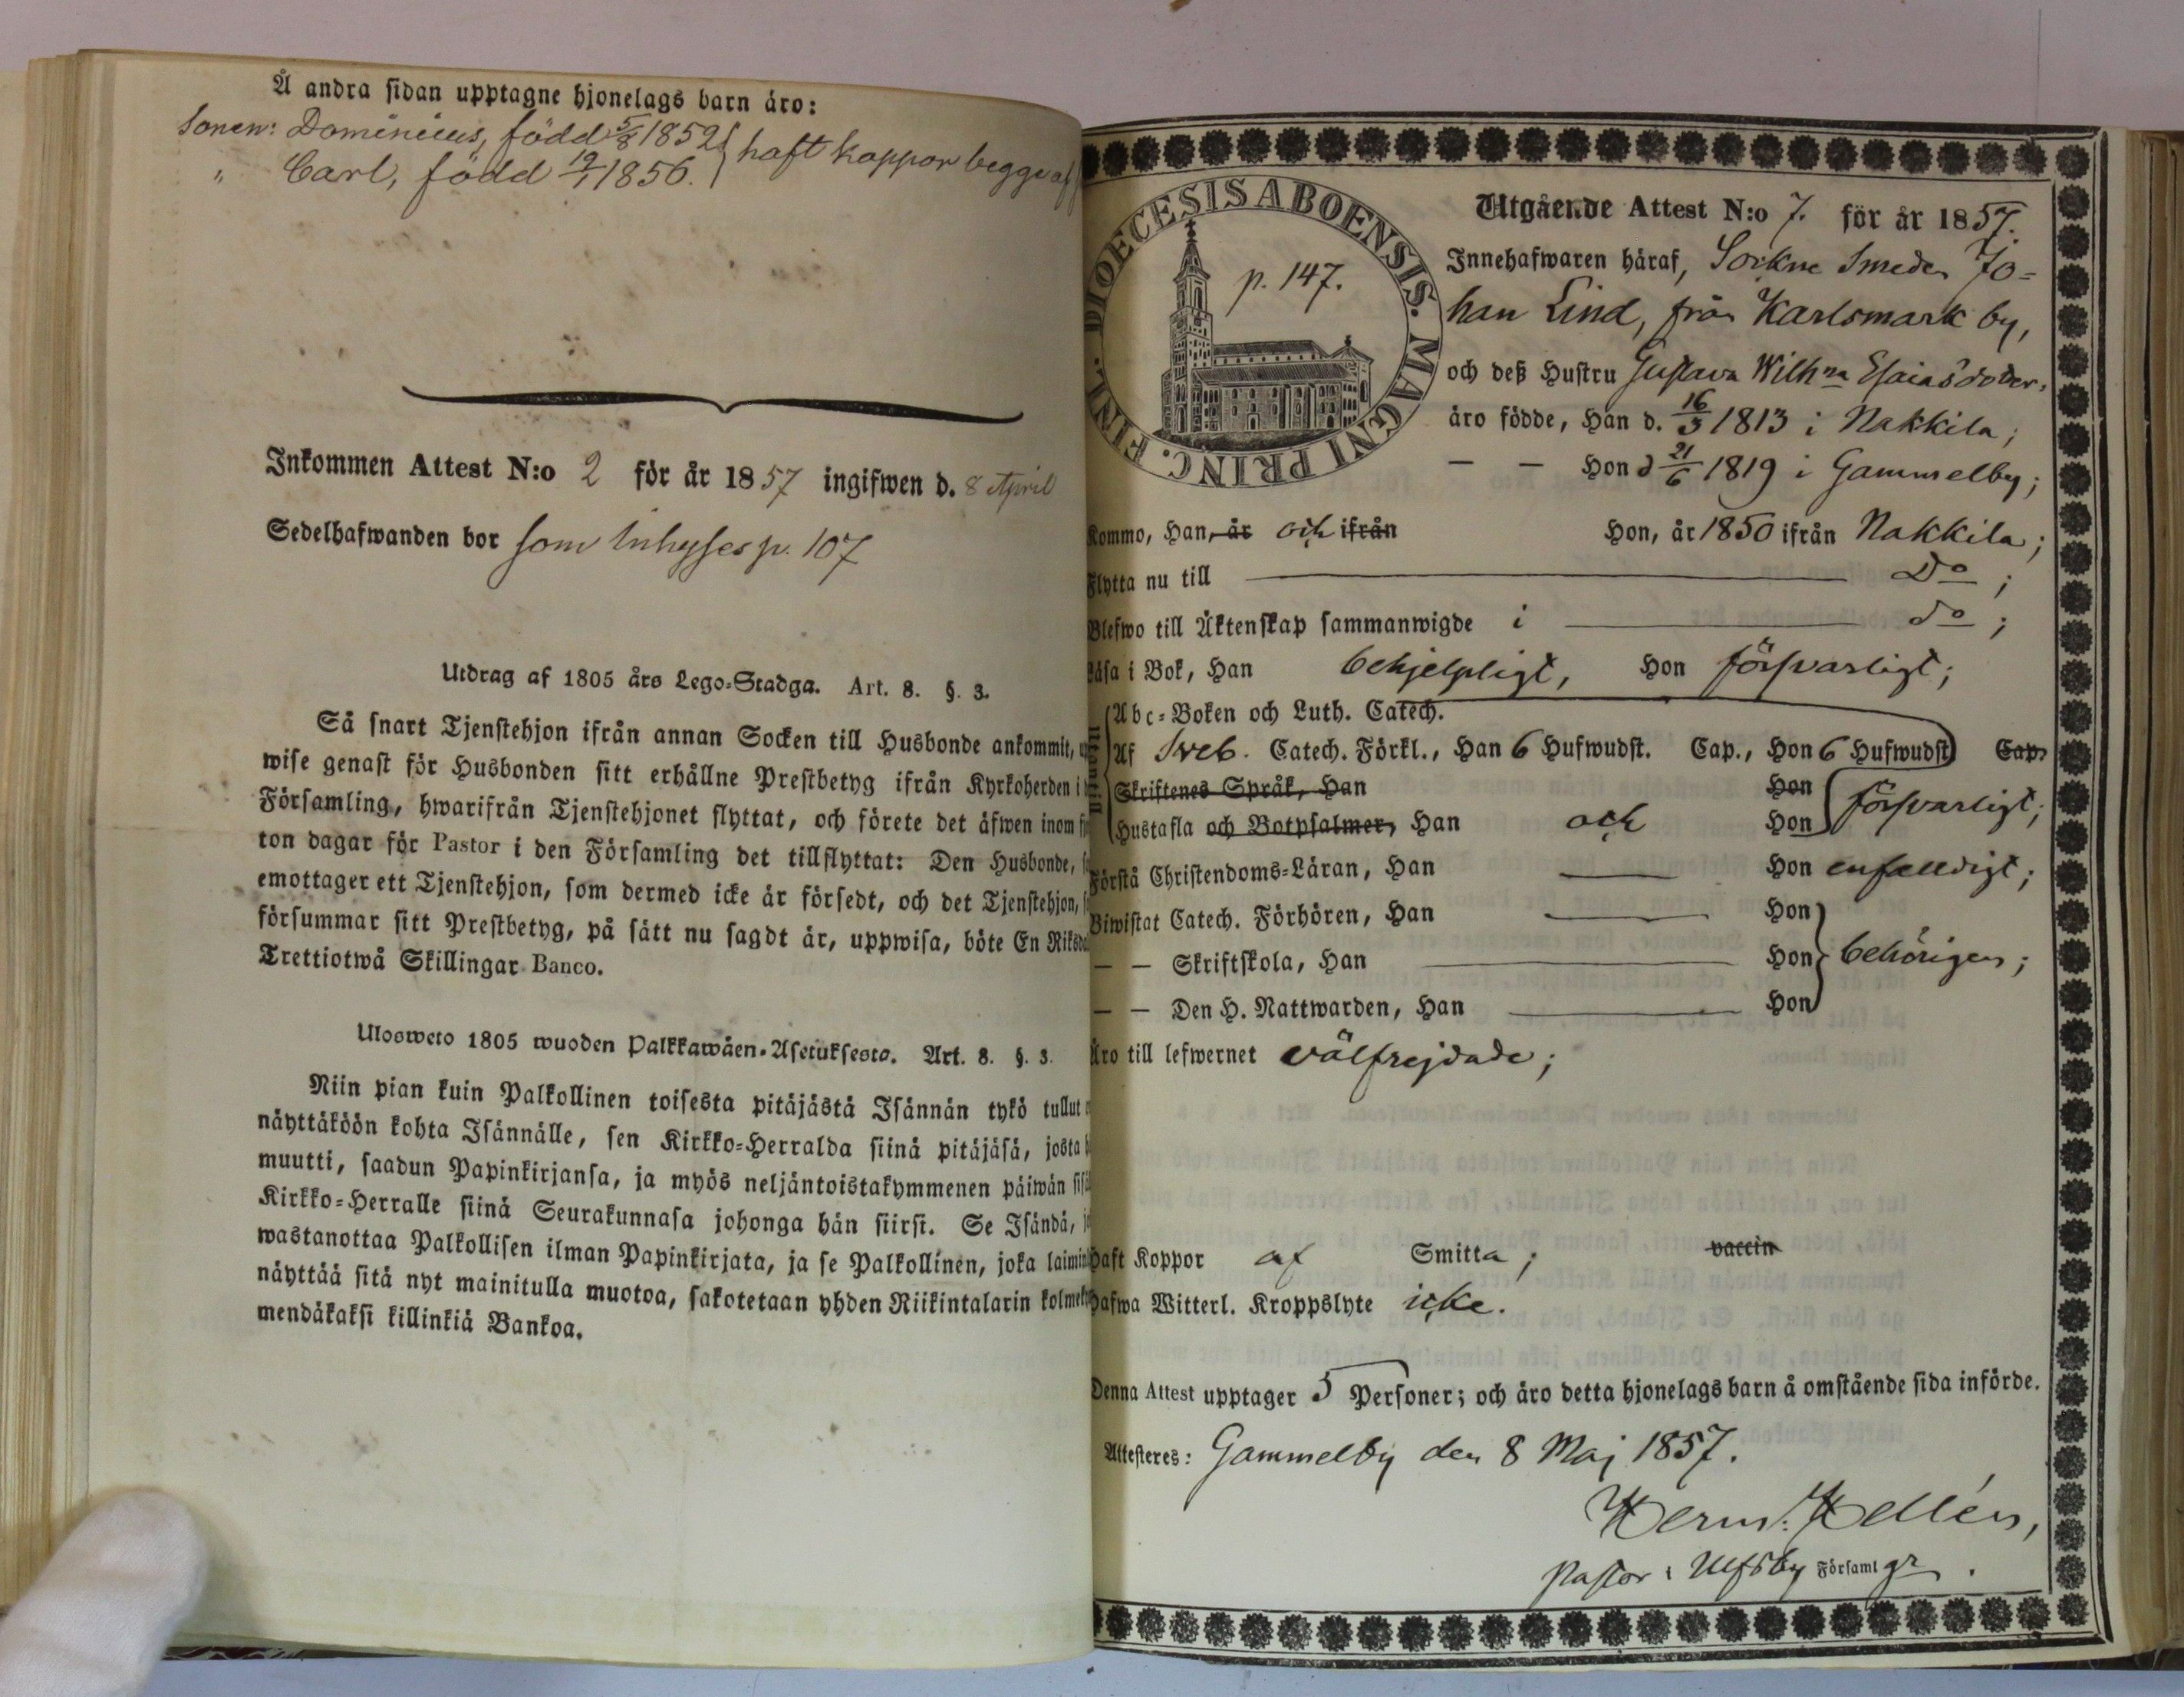 Å andra sidan upptagne hjonelags barn äro:
Sonen: Dominicus, född 5/8 1852 } haft koppor begge af
" Carl, född 19/1 1856.
Inkommen Attest N:o 2 för år 1857 ingifwen d. 8 April
Sedelhafwanden bor som Inhyses p. 107
Utdrag af 1805 års Lego-Stadga. Art. 8. §. 3.
Så snart Tjenstehjon ifrån annan Socken till Husbonde ankommit,
wise genast för Husbonden sitt erhållne Prestbetyg ifrån Kyrkoherden i
Församling, hwarifrån Tjenstehjonet flyttat, och förete det äfwen inom
ton dagar för Pastor i den Församling det tillflyttat: Den Husbonde,
emottager ett Tjenstehjon, som dermed icke är försedt, och det Tjenstehjon,
försummar sitt Prestbetyg, på sätt nu sagdt är, uppwisa, böte En Riksda
Trettiotwå Skillingar Banco.
Ulosweto 1805 wuoden Palkkawäen-Asetuksesta. Art. 8. §. 3.
Niin pian kuin Palkollinen toisesta pitäjästä Isännän tykö tullut
näyttäköön kohta Isännälle, sen Kirkko-Herralda siinä pitäjäsä, josta
muutti, saadun Papinkirjansa, ja myös neljäntoistakymmenen päiwän sisä
Kirkko-Herralle siinä Seurakunnasa johonga hän siirsi. Se Isändä,
wastanottaa Palkollisen ilman Papinkirjata, ja se Palkollinen, joka laimin
näyttää sitä nyt mainitulla muotoa, sakotetaan yhden Riikintalarin kolme
mendäkaksi killinkiä Bankoa.
DIOECESIS ABOENSIS. MAGNI PRINC. FINL.
p. 147.
Utgående Attest N:o 7. för år 1857.
Innehafwaren häraf, Sockne Smeden Jo-
han Lind, från Karlsmark by,
och deß Hustru Gustava Wilhna Esaiasdotter,
äro födde, Han d. 16/3 1813 i Nakkila;
— — Hon d 21/6 1819 i Gammelby;
Kommo, Han, år och ifrån Hon, år 1850 ifrån Nakkila;
Flytta nu till Do;
Blefwo till Äktenskap sammanwigde i do;
Läsa i Bok, Han behjelpligt, Hon försvarligt;
Abc-Boken och Luth. Catech.
Af Sveb. Catech. Förkl., Han 6 Hufwudst. Cap., Hon 6 Hufwudst Cap,
Skriftenes Språk, Han Hon
Hustafla och Botpsalmer, Han och Hon försvarligt;
Förstå Christendoms-Läran, Han — Hon enfalldigt;
Biwistat Catech. Förhören, Han — Hon
— — Skriftskola, Han — Hon behörigen;
— — Den H. Nattwarden, Han — Hon
Äro till lefwernet välfrejdade;
Haft Koppor af Smitta; vaccin
Hafwa Witterl. Kroppslyte icke.
Denna Attest upptager 5 Personer; och äro detta hjonelags barn å omstående sida införde.
Attesteres: Gammelby den 8 Maj 1857.
Herm: Hellén,
Pastor i Ulfsby Församlgr.